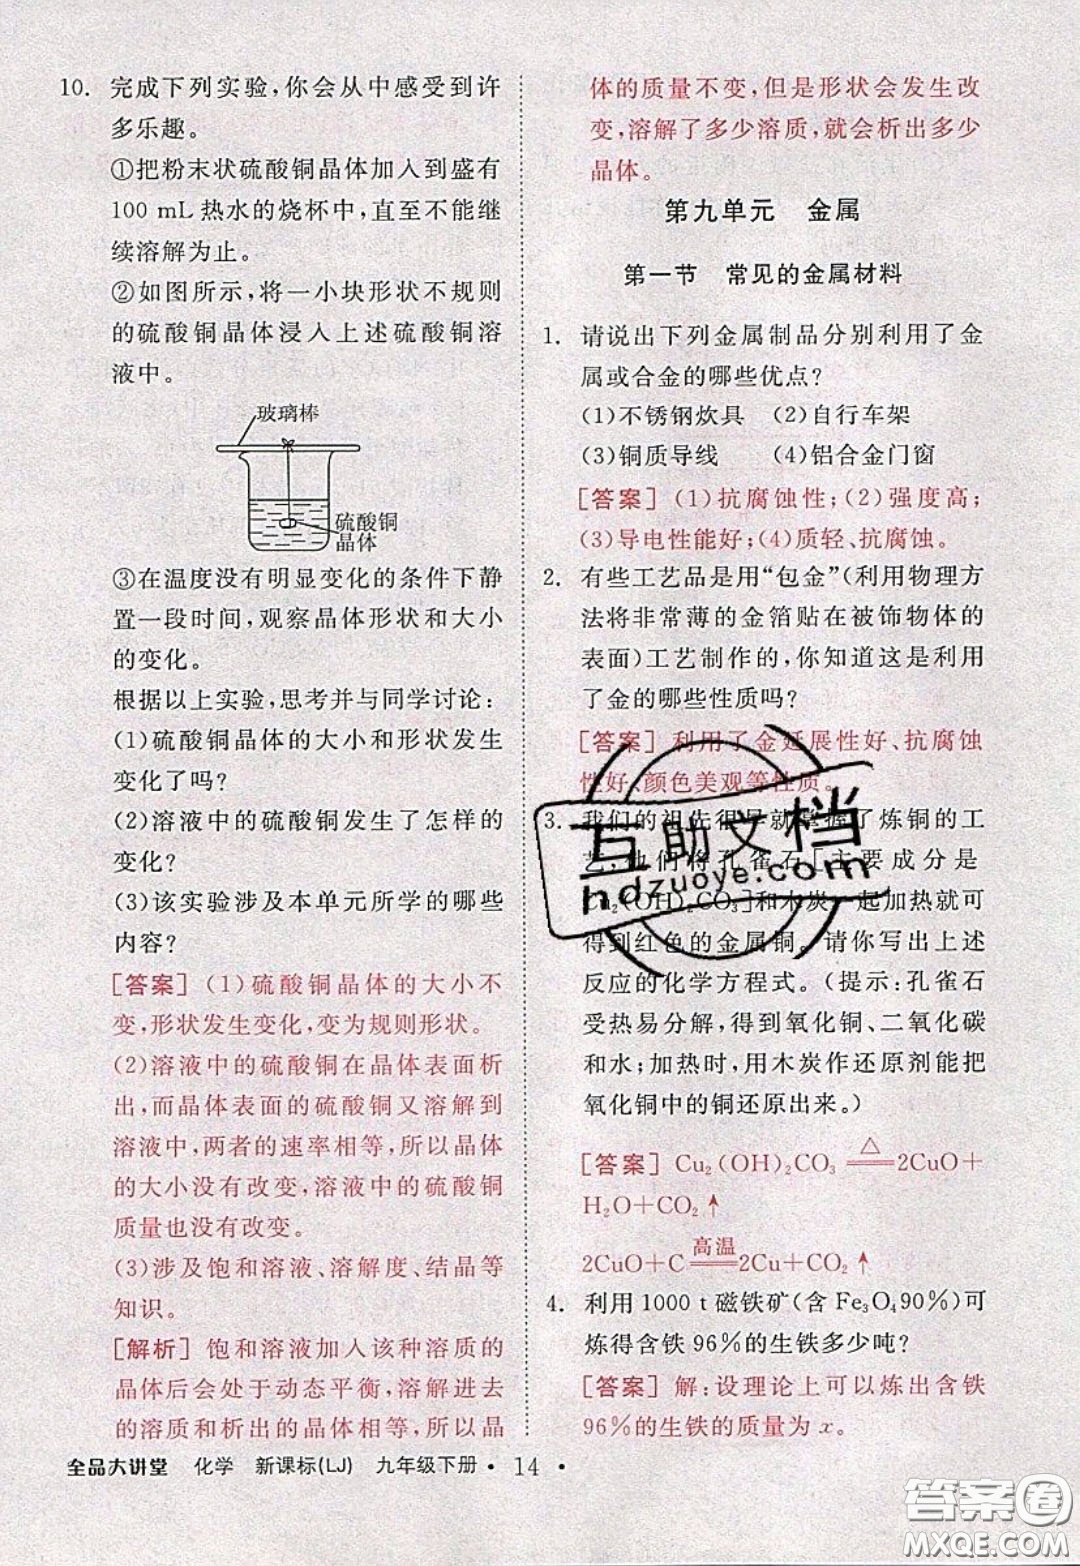 10. 完成下列实验,你会从中感受到许
多乐趣。
①把粉末状硫酸铜晶体加入到盛有
100 mL热水的烧杯中,直至不能继
续溶解为止。
②如图所示,将一小块形状不规则
的硫酸铜晶体浸入上述硫酸铜溶
液中。
玻璃棒
硫酸铜
晶体
③在温度没有明显变化的条件下静
置一段时间,观察晶体形状和大小
的变化。
根据以上实验,思考并与同学讨论:
(1)硫酸铜晶体的大小和形状发生
变化了吗?
(2)溶液中的硫酸铜发生了怎样的
变化?
(3)该实验涉及本单元所学的哪些
内容?
[答案] (1)硫酸铜晶体的大小不
变,形状发生变化,变为规则形状。
(2)溶液中的硫酸铜在晶体表面析
出,而晶体表面的硫酸铜又溶解到
溶液中,两者的速率相等,所以晶体
的大小没有改变,溶液中的硫酸铜
质量也没有改变。
(3)涉及饱和溶液、溶解度、结晶等
知识。
[解析] 饱和溶液加入该种溶质的
晶体后会处于动态平衡,溶解进去
的溶质和析出的晶体相等,所以晶
体的质量不变,但是形状会发生改
变,溶解了多少溶质,就会析出多少
晶体。
第九单元 金属
第一节 常见的金属材料
1. 请说出下列金属制品分别利用了金
属或合金的哪些优点?
(1)不锈钢炊具 (2)自行车架
(3)铜质导线 (4)铝合金门窗
[答案] (1)抗腐蚀性;(2)强度高;
(3)导电性能好;(4)质轻、抗腐蚀。
2. 有些工艺品是用“包金”(利用物理方
法将非常薄的金箔贴在被饰物体的
表面)工艺制作的,你知道这是利用
了金的哪些性质吗?
[答案] 利用了金延展性好、抗腐蚀
性好、颜色美观等性质。
3. 我们的祖先很早就掌握了炼铜的工
艺,他们将孔雀石[主要成分是
Cu₂(OH)₂CO₃]和木炭一起加热就可
得到红色的金属铜。请你写出上述
反应的化学方程式。(提示:孔雀石
受热易分解,得到氧化铜、二氧化碳
和水;加热时,用木炭作还原剂能把
氧化铜中的铜还原出来。)
[答案] Cu₂(OH)₂CO₃ ══△══ 2CuO+
H₂O+CO₂↑
2CuO+C ══高温══ 2Cu+CO₂↑
4. 利用1000 t磁铁矿(含Fe₃O₄90%)可
炼得含铁96%的生铁多少吨?
[答案] 解:设理论上可以炼出含铁
96%的生铁的质量为x。
互助文档
hdzuoye.com
全品大讲堂 化学 新课标(LJ) 九年级下册 • 14 •
答案圈
MXQE.COM